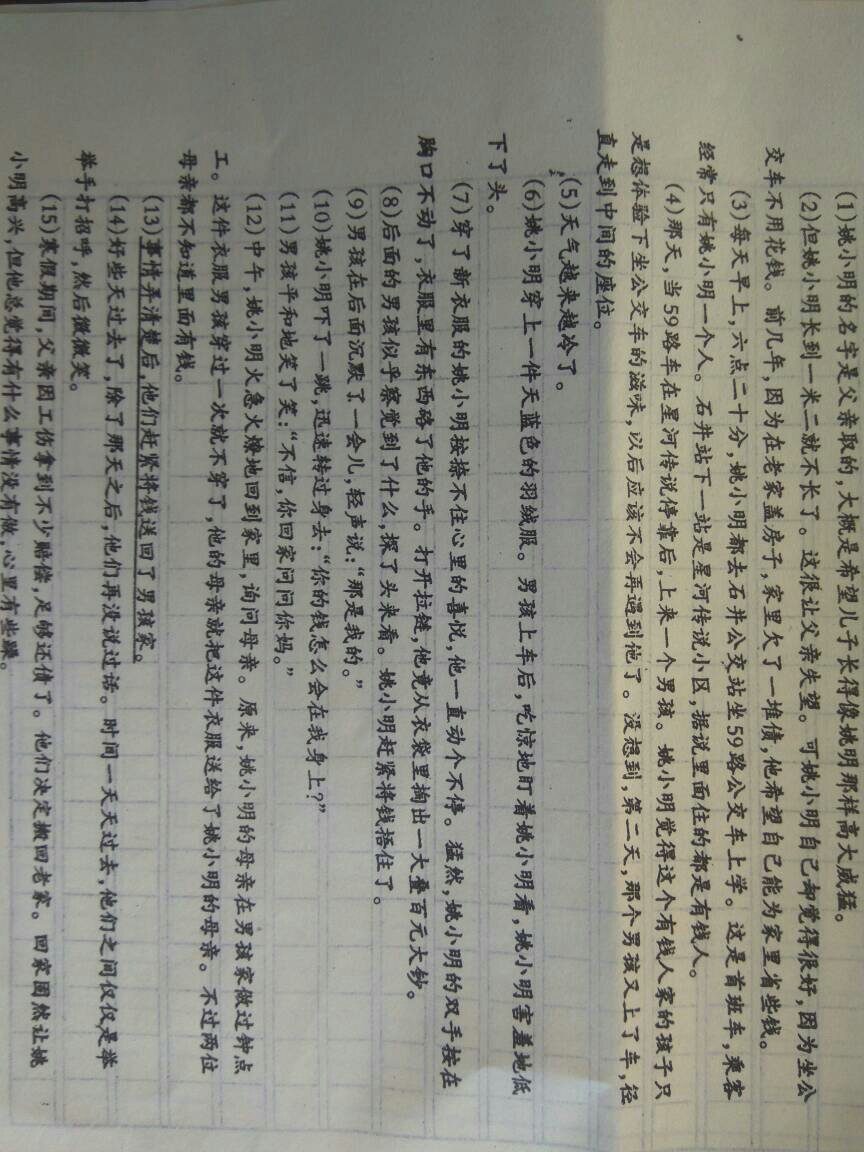 (1)姚小明的名字是父亲取的,大概是希望儿子长得像姚明那样高大威猛。
(2)但姚小明长到一米二就不长了。这很让父亲失望。可姚小明自己却觉得很好,因为坐公
交车不用花钱。前几年,因为在老家盖房子,家里欠了一堆债,他希望自己能为家里省些钱。
(3)每天早上,六点二十分,姚小明都去石井公交站坐59路公交车上学。这是首班车,乘客
经常只有姚小明一个人。石井站下一站是星河传说小区,据说里面住的都是有钱人。
(4)那天,当59路车在星河传说停靠后,上来一个男孩。姚小明觉得这个有钱人家的孩子只
是想体验下坐公交车的滋味,以后应该不会再遇到他了。没想到,第二天,那个男孩又上了车,径
直走到中间的座位。
(5)天气越来越冷了。
(6)姚小明穿上一件天蓝色的羽绒服。男孩上车后,吃惊地盯着姚小明看,姚小明害羞地低
下了头。
(7)穿了新衣服的姚小明按捺不住心里的喜悦,他一直动个不停。猛然,姚小明的双手按在
胸口不动了,衣服里有东西硌了他的手。打开拉链,他竟从衣袋里掏出一大叠百元大钞。
(8)后面的男孩似乎察觉到了什么,探了头来看。姚小明赶紧将钱捂住了。
(9)男孩在后面沉默了一会儿,轻声说:“那是我的。”
(10)姚小明吓了一跳,迅速转过身去:“你的钱怎么会在我身上?”
(11)男孩平和地笑了笑:“不信,你回家问问你妈。”
(12)中午,姚小明火急火燎地回到家里,询问母亲。原来,姚小明的母亲在男孩家做过钟点
工。这件衣服男孩穿过一次就不穿了,他的母亲就把这件衣服送给了姚小明的母亲。不过两位
母亲都不知道里面有钱。
(13)事情弄清楚后,他们赶紧将钱送回了男孩家。
(14)好些天过去了,除了那天之后,他们再没说过话。时间一天天过去,他们之间仅仅是举
举手打招呼,然后微微笑。
(15)寒假期间,父亲因工伤拿到不少赔偿,足够还债了。他们决定搬回老家。回家固然让姚
小明高兴,但他总觉得有什么事情没有做,心里有些躁。